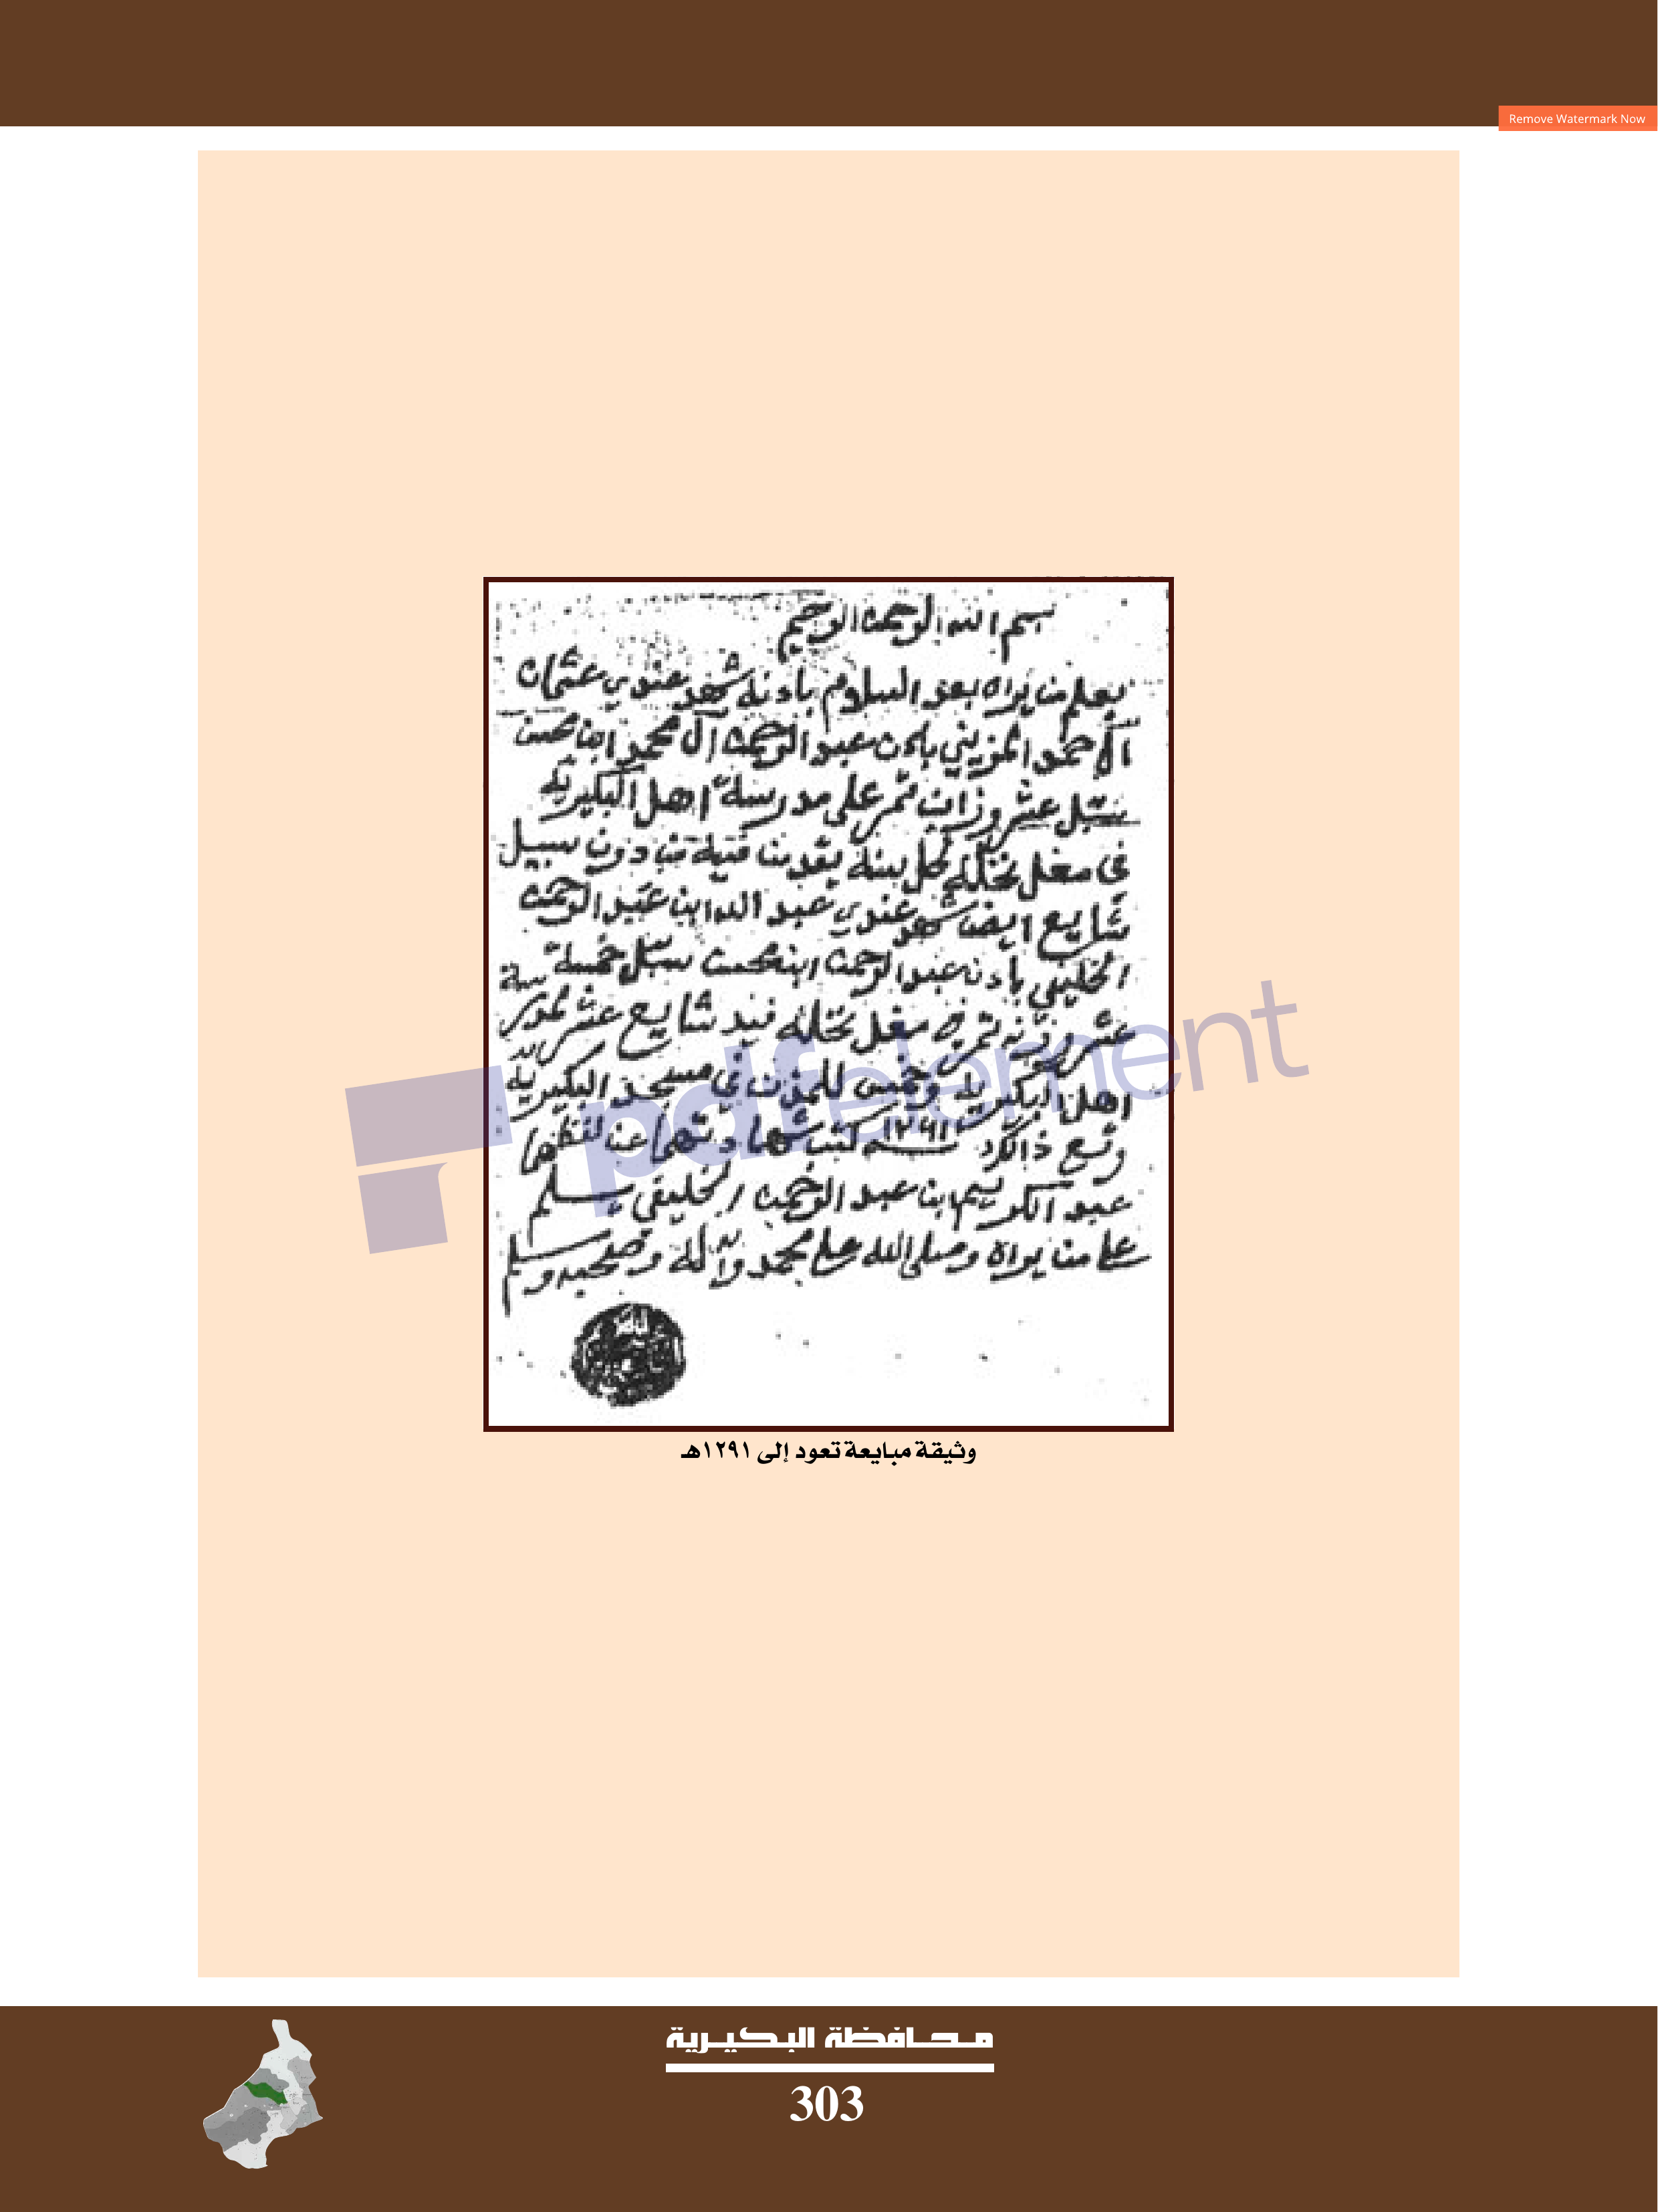 Remove Watermark Now
بسم الله الرحمن الرحيم
يعلم من يراه بعد السلام بأنه شهد عندي عثمان
الاحمد المزيني بان عبد الرحمن آل محمد ابن محسن
سبل عشر وزان تمر على مدرسة اهل البكيريه
في مغل نخله كل سنة يقدمن دون سبيل
شايع ايضا شهد عندي عبد الله ابن عبد الرحمن
الخليفي بان عبد الرحمن ابن محسن سبل خمسة
عشر وزنه تمر في مغل نخله فيد شايع عشر لمدرسة
اهل البكيريه وخمس للمؤذن في مسجد البكيريه
وقع ذالك ١٢٩١ كتب شهادتهما عن لفظهما
عبد الكريم ابن عبد الرحمن الخليفي يسلم
على من يراه وصلى الله على محمد وآله وصحبه وسلم
pdfelement
وثيقة مبايعة تعود إلى ١٢٩١هـ
محافظة البكيرية
303